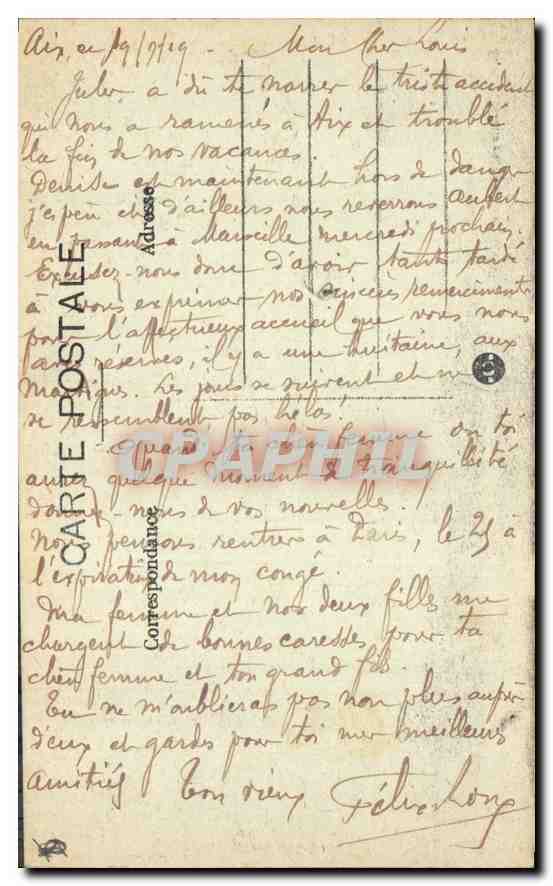 Aix, ce 19/9/19 - Mon Cher Louis
Jules a dû te narrer le triste accident
qui nous a ramenés à Aix et troublé
la fin de nos vacances.
Denise est maintenant hors de danger
j'espère et d'ailleurs nous reverrons Aubert
en passant à Marseille mercredi prochain.
Excusez-nous donc d'avoir tant tardé
à vous exprimer nos sincères remerciements
pour l'affectueux accueil que vous nous
avez réservés, il y a une huitaine, aux
Martigues. Les jours se suivent et ne
se ressemblent pas, hélas!
Quand ta chère femme ou toi
aurez quelque moment de tranquillité
donnez-nous de vos nouvelles.
Nous pensons rentrer à Paris, le 25 à
l'expiration de mon congé.
Ma femme et nos deux filles me
chargent de bonnes caresses pour ta
chère femme et ton grand fils.
Tu ne m'oublieras pas non plus auprès
d'eux et gardes pour toi mes meilleures
amitiés Ton vieux Félix
CARTE POSTALE
Correspondance
Adresse
CPAPHIL